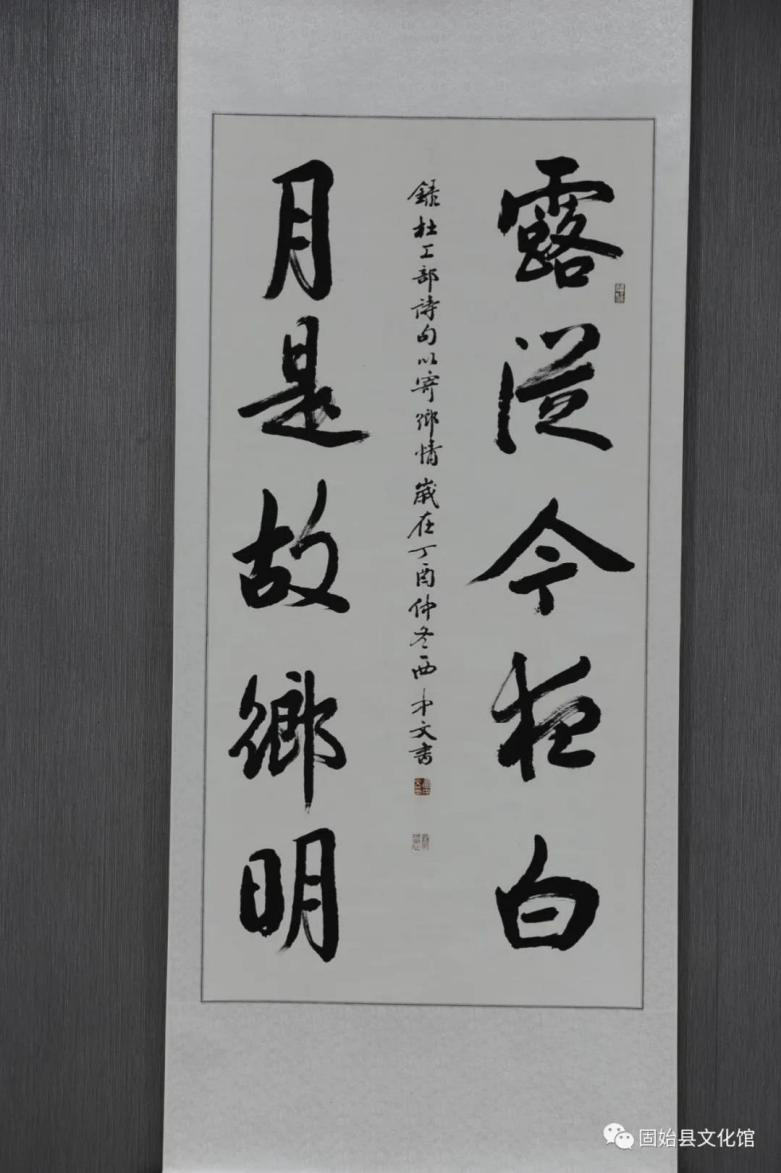 露從今夜白
錄杜工部詩句以寄鄉情歲在丁酉仲冬西中文書
月是故鄉明
固始县文化馆